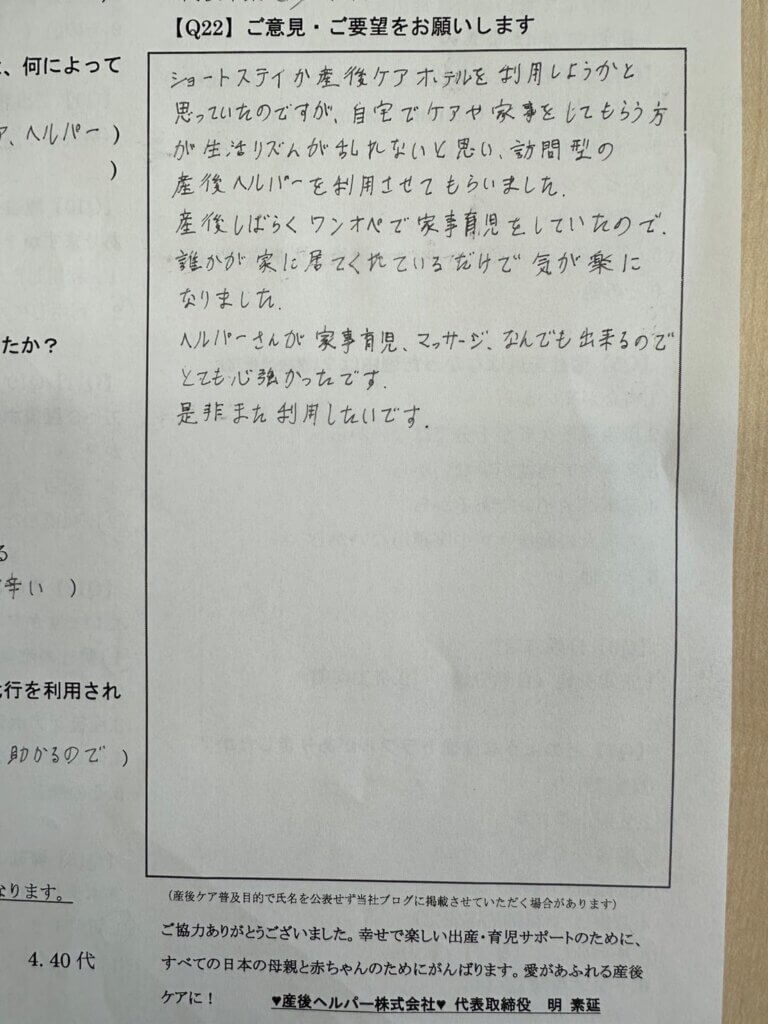 【Q22】ご意見・ご要望をお願いします
、何によって
ア、ヘルパー )
)
たか?
る
辛い )
行を利用され
助かるので )
なります。
4. 40 代
ショートステイか産後ケアホテルを利用しようかと
思っていたのですが、自宅でケアや家事をしてもらう方
が生活リズムが乱れないと思い、訪問型の
産後ヘルパーを利用させてもらいました.
産後しばらくワンオペで家事育児をしていたので.
誰かが家に居てくれているだけで気が楽に
なりました.
ヘルパーさんが家事育児、マッサージ、なんでも出来るので
とても心強かったです.
是非また利用したいです.
(産後ケア普及目的で氏名を公表せず当社ブログに掲載させていただく場合があります)
ご協力ありがとうございました。幸せで楽しい出産・育児サポートのために、
すべての日本の母親と赤ちゃんのためにがんばります。愛があふれる産後
ケアに! ♥産後ヘルパー株式会社♥ 代表取締役 明 素延